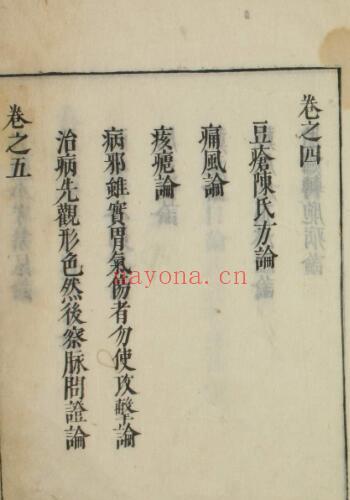 卷之四
豆瘡陳氏方論
痛風論
痎瘧論
病邪雖實胃氣傷者勿使攻擊論
治病先觀形色然後察脉問證論
卷之五
xayona.cn